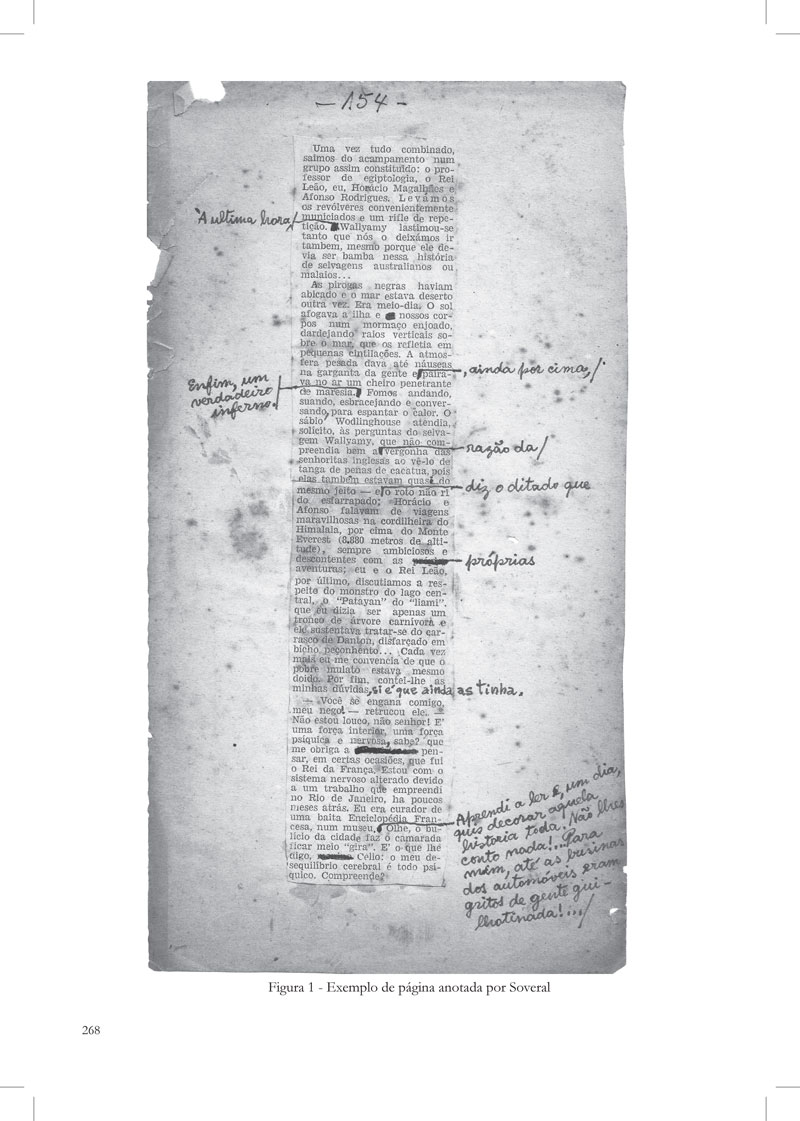 - 154 -
Uma vez tudo combinado,
saimos do acampamento num
grupo assim constituído: o pro-
fessor de egiptologia, o Rei
Leão, eu, Horácio Magalhães e
Afonso Rodrigues. Levámos
os revólveres convenientemente
'A ultima hora/
municiados e um rifle de repe-
tição. Wallyamy lastimou-se
tanto que nós o deixámos ir
tambem, mesmo porque ele de-
via ser bamba nessa história
de selvagens australianos ou
malaios...
As pirogas negras haviam
abicado e o mar estava deserto
outra vez. Era meio-dia. O sol
afogava a ilha e nossos cor-
pos num mormaço enjoado,
dardejando raios verticais so-
bre o mar, que os refletia em
pequenas cintilações. A atmos-
fera pesada dava até náuseas
na garganta da gente e paira-
, ainda por cima, /
va no ar um cheiro penetrante
Enfim, um
verdadeiro
inferno./
de maresia. Fomos andando,
suando, esbracejando e conver-
sando, para espantar o calor. O
sábio Wodlinghouse atendia,
solícito, às perguntas do selva-
gem Wallyamy, que não com-
preendia bem a vergonha das
razão da/
senhoritas inglesas ao vê-lo de
tanga de penas de cacatua, pois
elas também estavam quasi do
mesmo jeito — e o roto não ri
diz o ditado que
do esfarrapado; Horácio e
Afonso falavam de viagens
maravilhosas na cordilheira do
Himalaia, por cima do Monte
Everest (8.880 metros de alti-
tude), sempre ambiciosos e
descontentes com as
próprias
aventuras; eu e o Rei Leão,
por último, discutiamos a res-
peito do monstro do lago cen-
tral, o "Patayan" do "liami",
que eu dizia ser apenas um
tronco de árvore carnívora e
ele sustentava tratar-se do car-
rasco de Danton, disfarçado em
bicho peçonhento... Cada vez
mais eu me convencia de que o
pobre mulato estava mesmo
doido. Por fim, contei-lhe as
minhas dúvidas, si é que ainda as tinha.
— Você se engana comigo,
meu nego! — retrucou ele. —
Não estou louco, não senhor! E'
uma força interior, uma força
psíquica e nervosa, sabe? que
me obriga a pen-
sar, em certas ocasiões, que fui
o Rei da França. Estou com o
sistema nervoso alterado devido
a um trabalho que empreendi
no Rio de Janeiro, ha poucos
meses atrás. Eu era curador de
uma baita Enciclopédia Fran-
cesa, num museu. Olhe, o bu-
Aprendi a ler e, um dia,
quis decorar aquela
historia toda. Não lhes
conto nada!.. Para
mim, até as businas
dos automóveis eram
gritos de gente gui-
lhotinada!.../
lício da cidade faz o camarada
ficar meio "gira". E' o que lhe
digo, Célio: o meu de-
sequilíbrio cerebral é todo psí-
quico. Compreende?
Figura 1 - Exemplo de página anotada por Soveral
268